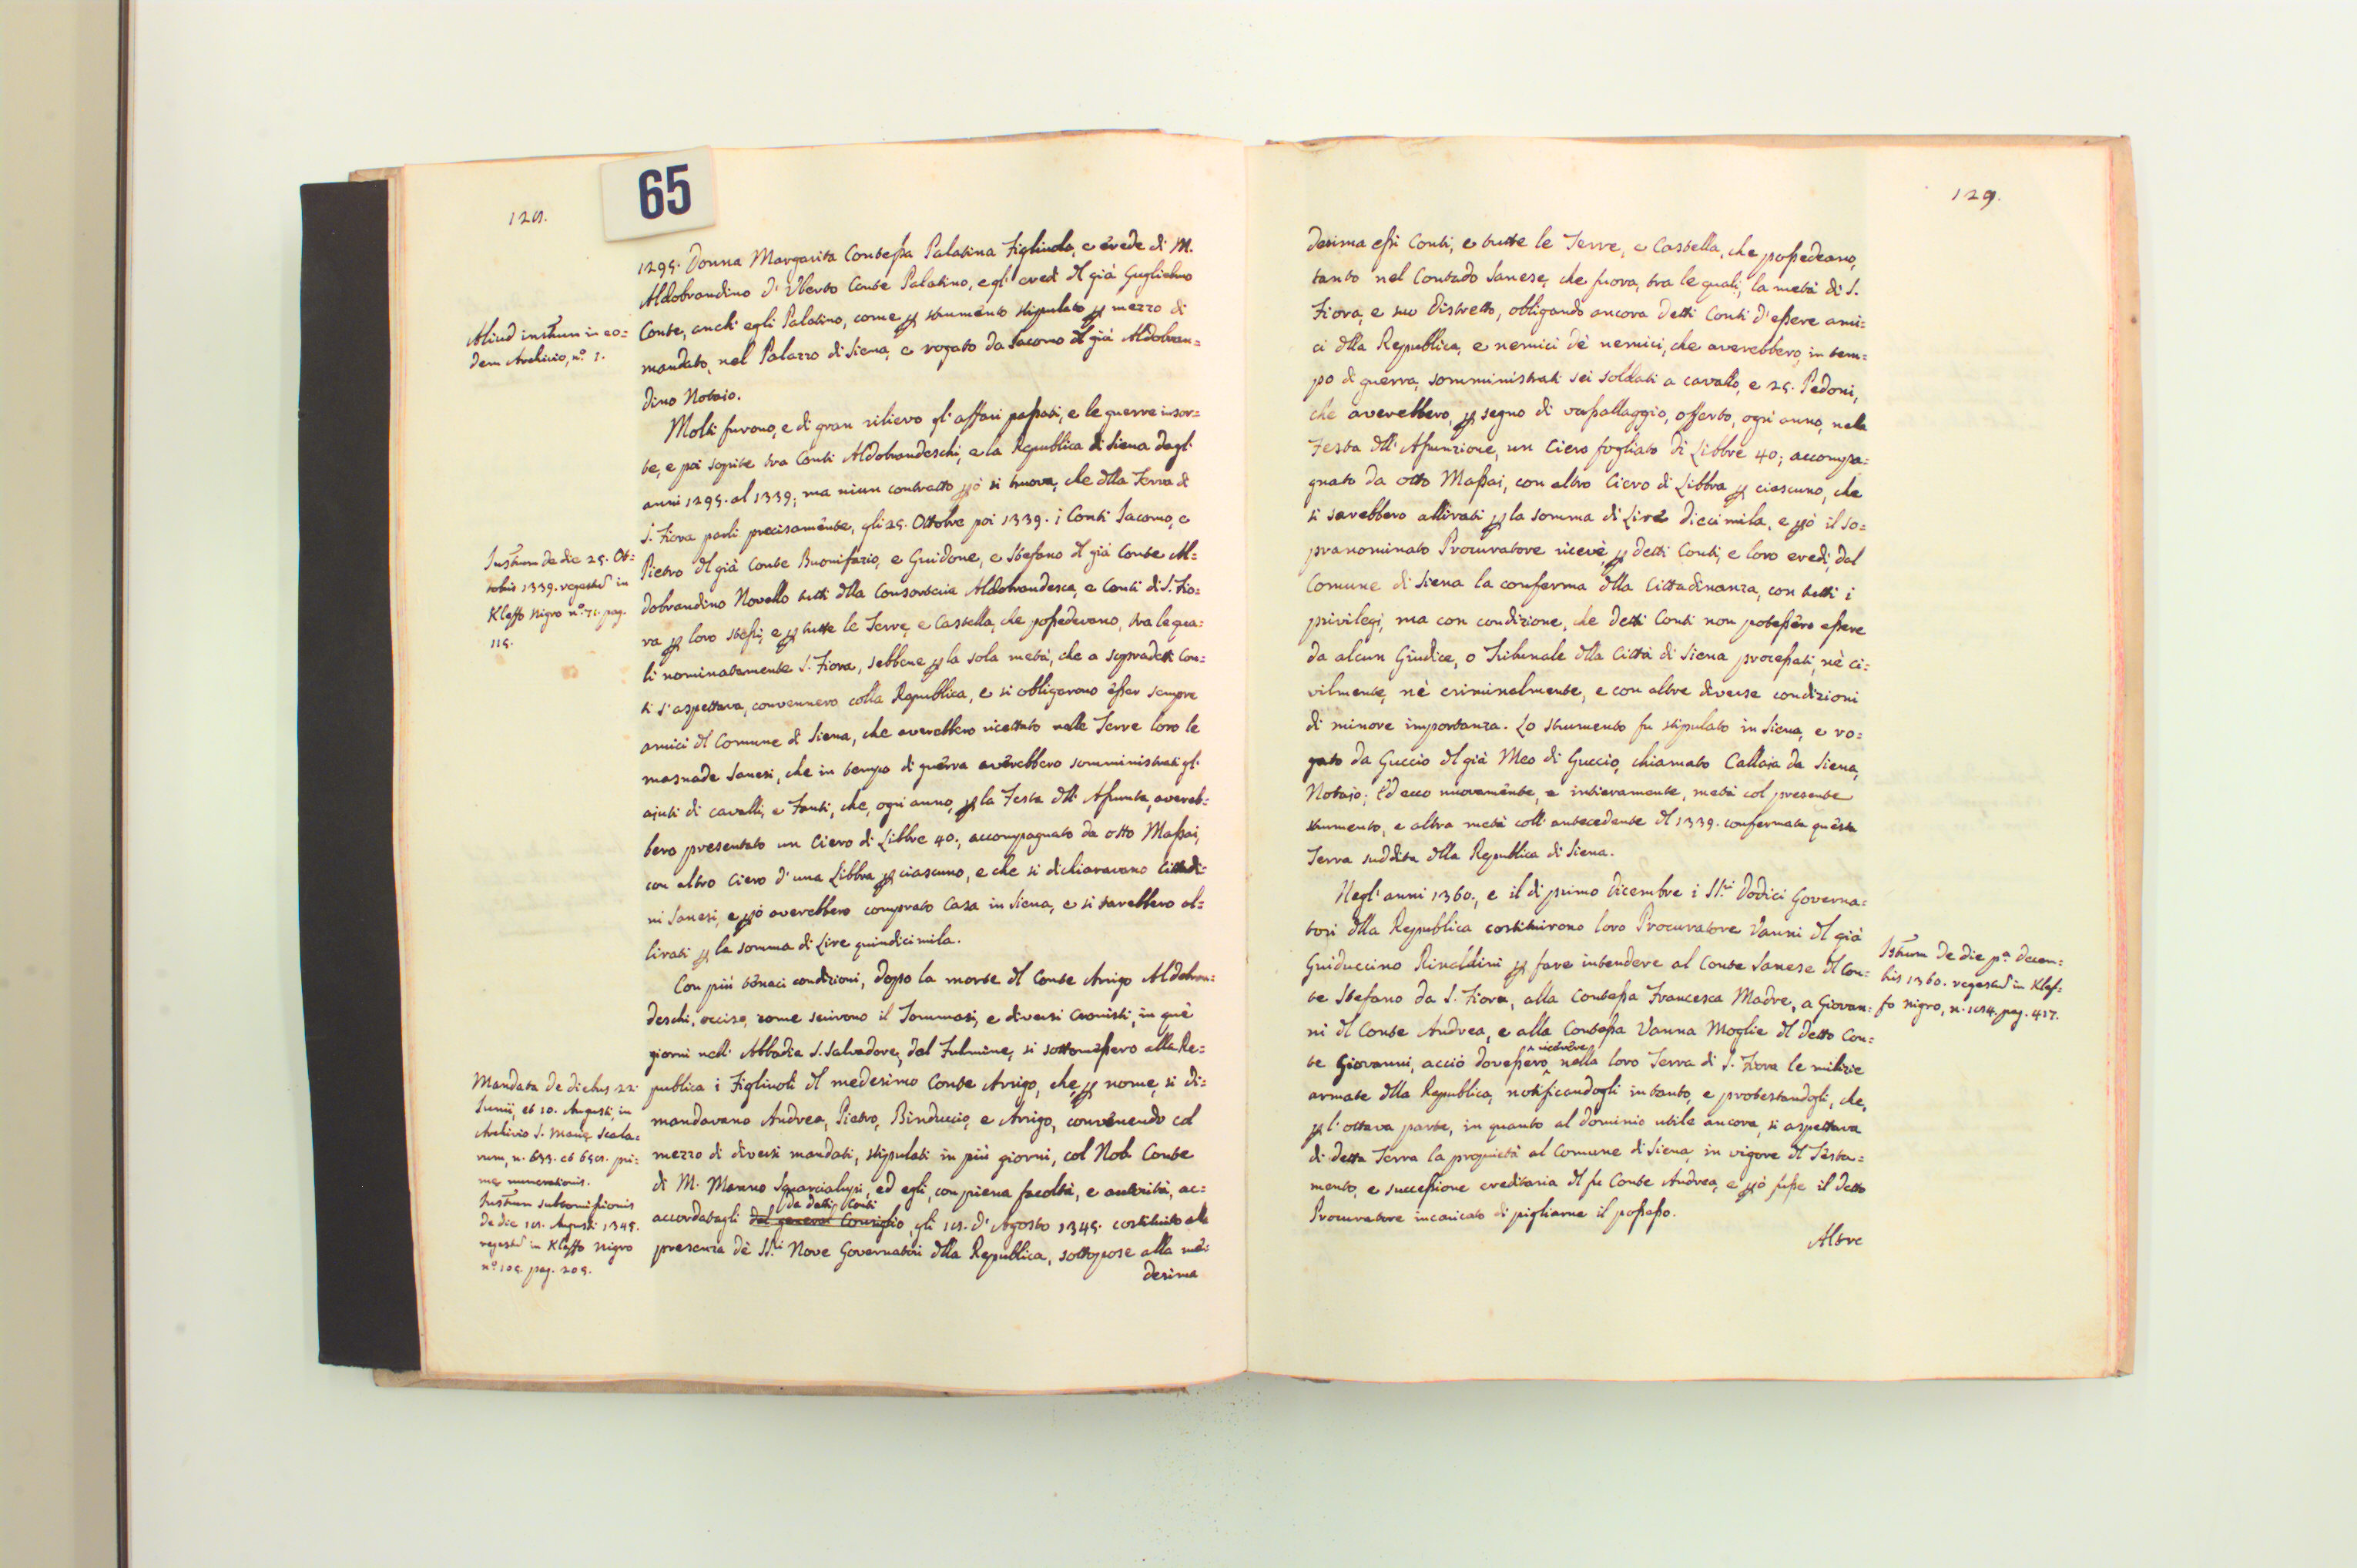 128.
65
1295. Donna Margarita Contessa Palatina Figliuola, e erede di M.
Aldobrandino d'Uberto Conte Palatino, e gl'eredi del già Guglielmo
Conte, anch'egli Palatino, come p strumento stipulato p mezzo di
mandato, nel Palazzo di Siena, e rogato da Iacomo del già Aldobran=
dino Notaio.
Aliud instrum in eo=
dem Archivio, nº. 1.
Molti furono, e di gran rilievo gl'affari passati, e le guerre insor=
te, e poi sopite tra Conti Aldobrandeschi, e la Republica di Siena dagl'
anni 1295. al 1339; ma niun contratto pò si truova, che della Terra di
S. Fiora parli precisamente, gli 25. Ottobre poi 1339. i Conti Iacomo, e
Pietro del già Conte Buonifazio, e Guidone, e Stefano del già Conte Al=
dobrandino Novello tutti della Consorteria Aldobrandesca, e Conti di S. Fio=
ra p loro stessi, e p tutte le Terre, e Castella, che possedevano, tra le qua=
li nominatamente S. Fiora, sebbene p la sola metà, che a sopradetti Con=
ti s'aspettava, convennero colla Republica, e si obligarono esser sempre
amici del Comune di Siena, che averebbero ricettato nelle Terre loro le
masnade Sanesi, che in tempo di guerra averebbero somministrati gl'
ajuti di cavalli, e Fanti, che, ogni anno, p la Festa dell'Assunta, avereb=
bero presentato un Ciero di Libbre 40., accompagnato da otto Massai,
con altro Ciero d'una Libbra p ciascuno, e che si dichiaravano Cittadi=
ni Sanesi, e pò averebbero comprato Casa in Siena, e si sarebbero al=
lirati p la somma di Lire quindicimila.
Instrum de die 25. Oct=
tobris 1339. regestrd in
Kleffo Nigro nº. 71. pag.
115.
Con più tenaci condizioni, dopo la morte del Conte Arrigo Aldobran=
deschi, occiso, come scrivono il Tommasi, e diversi Cronisti, in que'
giorni nell'Abbadia S. Salvadore, dal Fulmine, si sottomessero alla Re=
publica i Figliuoli del medesimo Conte Arrigo, che, p nome, si di=
mandavano Andrea, Pietro, Binduccio, e Arrigo, convenendo col
mezzo di diversi mandati, stipulati in più giorni, col Nob. Conte
di M. Manno Squarcialupi, ed egli, con piena facoltà, e autorità, ac=
da detti Conti
accordatagli dal general Consiglio, gli 18. d'Agosto 1345. costituito alla
presenza de' SS.ri Nove Governatori della Republica, sottopose alla me=
desima
Mandata de diebus 22.
Iunii, et 10. Augusti, in
Archivio S. Marie Scala=
rum, n. 633. et 658. pri=
me numerationis.
Instrum submissionis
de die 18. Augusti 1345.
regestrd in Kleffo Nigro
nº. 105. pag. 205.
129.
desima essi Conti, e tutte le Terre, e Castella, che possedeano,
tanto nel Contado Sanese, che fuora, tra le quali, la metà di S.
Fiora, e suo Distretto, obligando ancora detti Conti d'essere ami=
ci della Republica, e nemici de' nemici, che averebbero, in tem=
po di guerra, somministrati sei soldati a cavallo, e 25. Pedoni,
che averebbero, p segno di vassallaggio, offerto, ogni anno, nela
Festa dell'Assunzione, un Ciero fogliato di Libbre 40; accompa=
gnato da otto Massai, con altro Ciero di Libbra p ciascuno, che
si sarebbero allirati p la somma di Lire diecimila, e pò il so=
pranominato Procuratore ricevè, p detti Conti, e loro eredi, dal
Comune di Siena la conferma della Cittadinanza, con tutti i
privilegi, ma con condizione, che detti Conti non potessero essere
da alcun Giudice, o Tribunale della Città di Siena processati, nè ci=
vilmente, nè criminalmente, e con altre diverse condizioni
di minore importanza. Lo strumento fu stipulato in Siena, e ro=
gato da Guccio del già Meo di Guccio, chiamato Callaja da Siena,
Notajo; Ed ecco nuovamente, e intieramente, metà col presente
strumento, e altra metà coll'antecedente del 1339. confermata questa
Terra suddita della Republica di Siena.
Negl'anni 1360., e il dì primo Dicembre i SS.ri Dodici Governa=
tori della Republica costituirono loro Procuratore Vanni del già
Guiduccino Rinaldini p fare intendere al Conte Sanese del Con=
te Stefano da S. Fiora, alla Contessa Francesca Madre, a Giovan=
ni del Conte Andrea, e alla Contessa Vanna Moglie del detto Con=
ricevere
te Giovanni, acciò dovessero, nella loro Terra di S. Fiora le milizie
armate della Republica, notificandogli intanto, e protestandogli, che,
p l'ottava parte, in quanto al dominio utile ancora, si aspettava
di detta Terra la proprietà al Comune di Siena, in vigore del Testa=
mento, e successione ereditaria del fu Conte Andrea, e pò fusse il detto
Procuratore incaricato di pigliarne il possesso.
Altre
Istrum de die pª. Decem=
bris 1360. regestrd in Klef=
fo Nigro, n. 184. pag. 417.